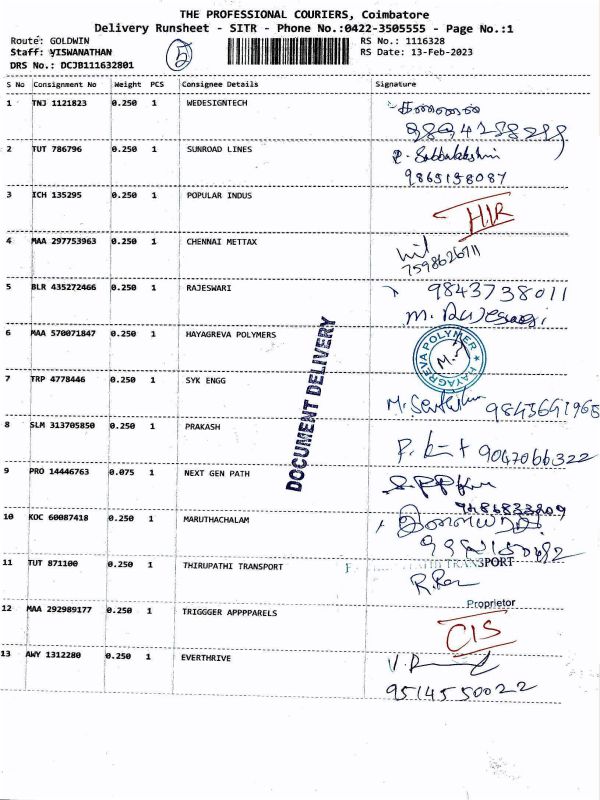 THE PROFESSIONAL COURIERS, Coimbatore
Delivery Runsheet - SITR - Phone No.:0422-3505555 - Page No.:1
Route: GOLDWIN
RS No.: 1116328
Staff: VISWANATHAN
5
RS Date: 13-Feb-2023
DRS No.: DCJB111632801
S No Consignment No Weight PCS Consignee Details Signature
1 TNJ 1121823 0.250 1 WEDESIGNTECH
2 TUT 786796 0.250 1 SUNROAD LINES
9865158087
3 ICH 135295 0.250 1 POPULAR INDUS
4 MAA 297753963 0.250 1 CHENNAI METTAX
7598626711
5 BLR 435272466 0.250 1 RAJESWARI 9843738011
M. Rajeswari
6 MAA 570071847 0.250 1 HAYAGREVA POLYMERS HAYAGREVA POLYMER
7 TRP 4778446 0.250 1 SYK ENGG
8 SLM 313705850 0.250 1 PRAKASH
9047066322
9 PRO 14446763 0.075 1 NEXT GEN PATH
9486833809
10 KOC 60087418 0.250 1 MARUTHACHALAM
11 TUT 871100 0.250 1 THIRUPATHI TRANSPORT TRANSPORT
Proprietor
12 MAA 292989177 0.250 1 TRIGGGER APPPPARELS
CIS
13 AWY 1312280 0.250 1 EVERTHRIVE
9514550022
DOCUMENT DELIVERY